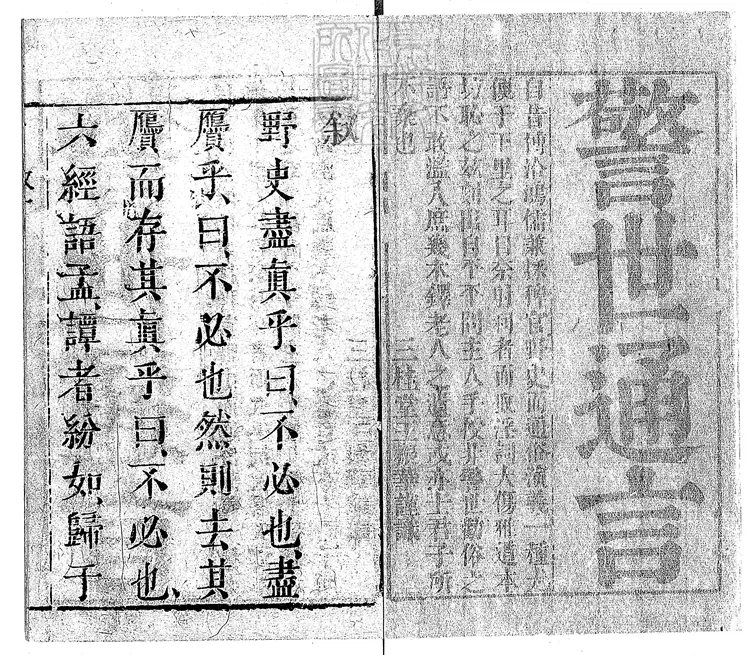 警世通言
自昔博洽鴻儒兼採稗官野史而通俗演義一種尤
便于下里之耳目奈射利者而取淫詞大傷雅道本
坊恥之茲刻出自平平閣主人手授非警世勸俗之
語不敢濫入庶幾木鐸老人之遺意或亦士君子所
不棄也 三桂堂王振華謹識
叙
野史盡眞乎、曰、不必也、盡
贋乎、曰、不必也、然則去其
贋而存其眞乎、曰、不必也、
六經語孟、譚者紛如、歸于